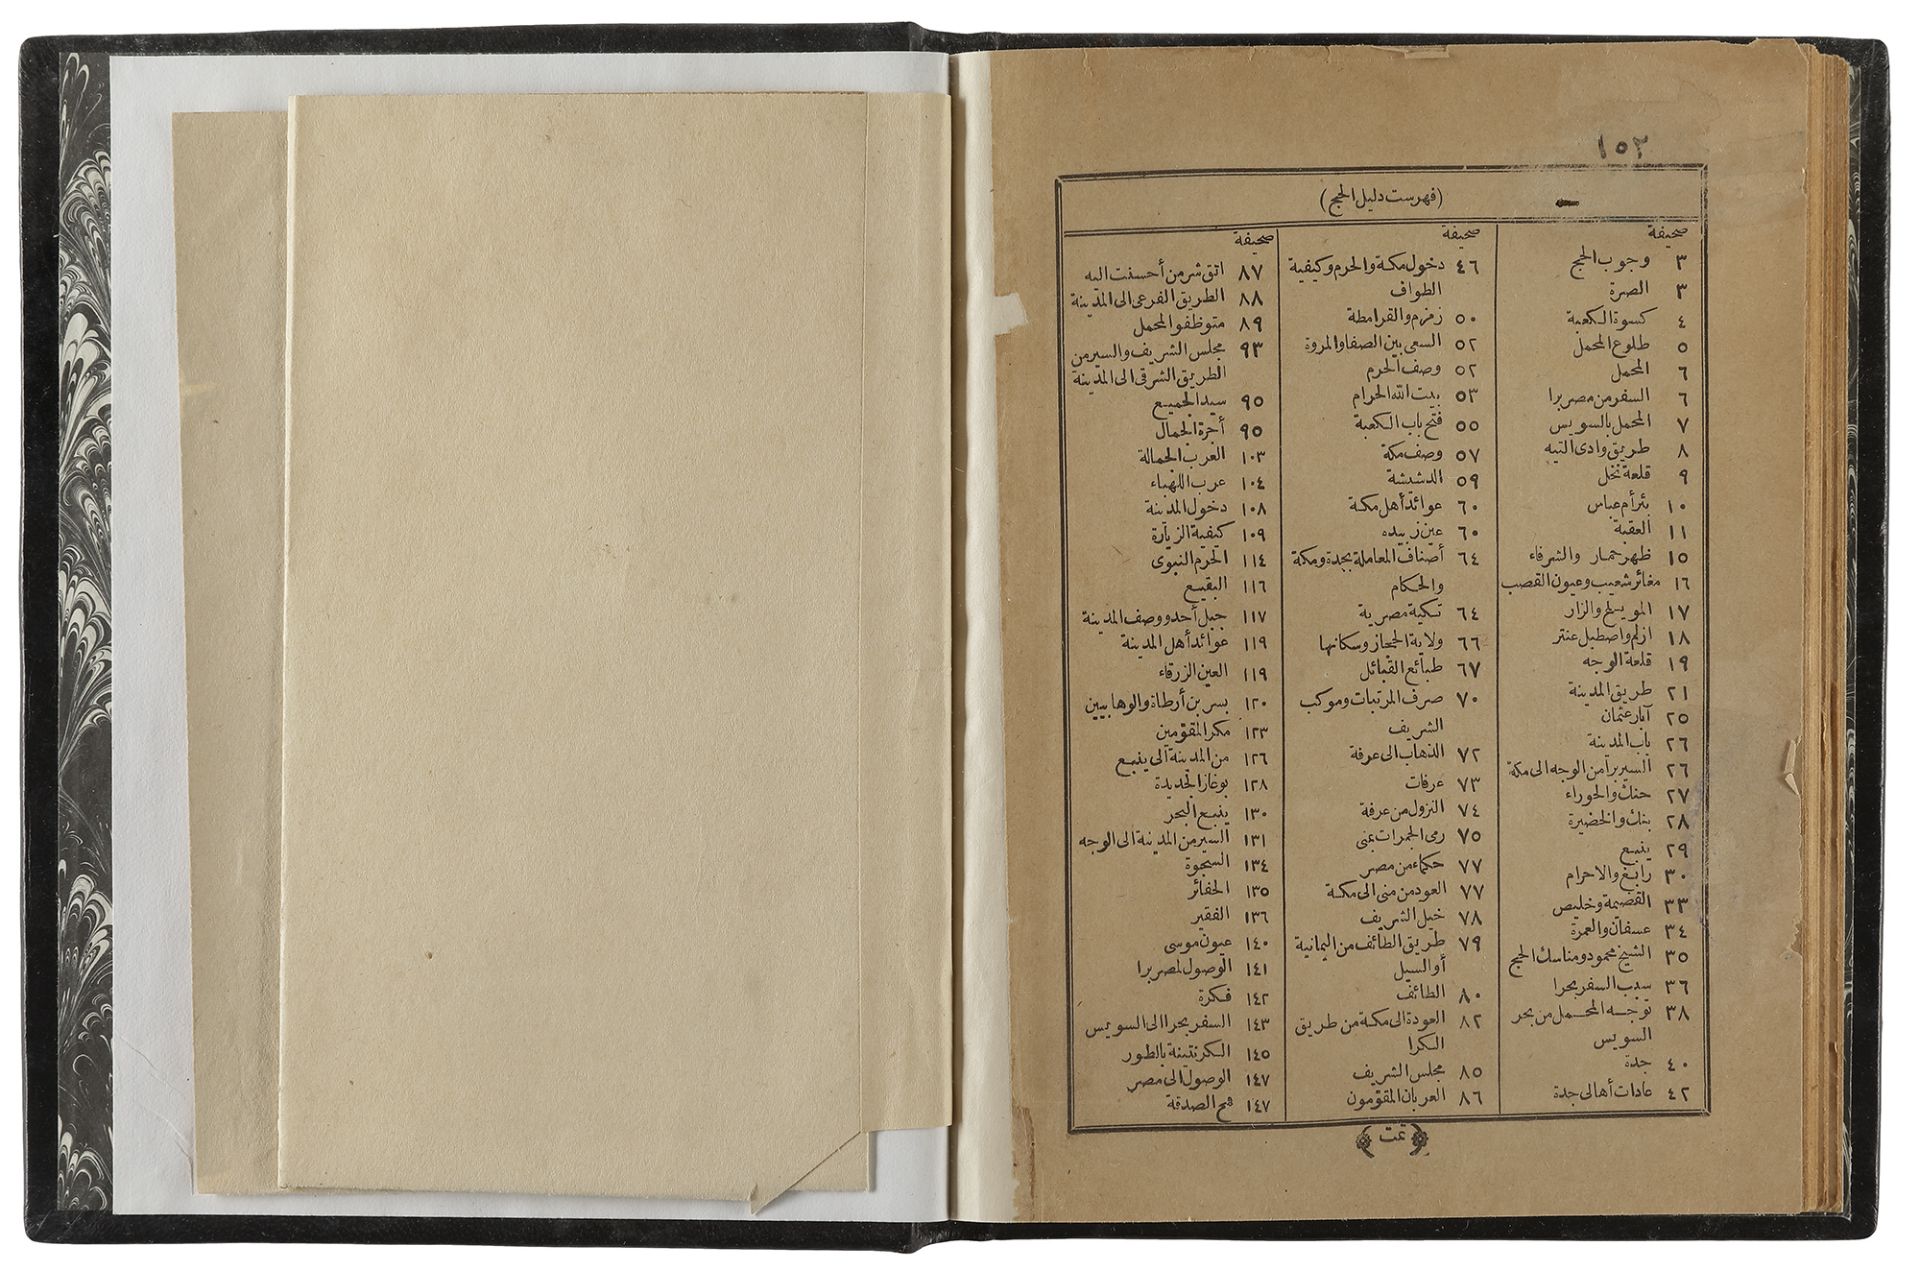 ١٥٢
(فهرست دليل الحج)
صحيفة
٣ وجوب الحج
٣ الصرة
٤ كسوة الكعبة
٥ طلوع المحمل
٦ المحمل
٦ السفر من مصر برا
٧ المحمل بالسويس
٨ طريق وادى التيه
٩ قلعة نخل
١٠ بئر أم عباس
١١ العقبة
١٥ ظهر حمار والشرفاء
١٦ مغائر شعيب وعيون القصب
١٧ المويلح والزار
١٨ ازلم واصطبل عنتر
١٩ قلعة الوجه
٢١ طريق المدينة
٢٥ آبار عثمان
٢٦ باب المدينة
٢٦ السير برا من الوجه الى مكة
٢٧ حنك والحوراء
٢٨ بنك والخضيرة
٢٩ ينبع
٣٠ رابغ والاحرام
٣٣ القضيمة وخليص
٣٤ عسفان والعمرة
٣٥ الشيخ محمود ومناسك الحج
٣٦ سبب السفر بحرا
٣٨ توجه المحمل من بحر
السويس
٤٠ جدة
٤٢ عادات أهالى جدة
صحيفة
٤٦ دخول مكة والحرم وكيفية
الطواف
٥٠ زمزم والقرامطة
٥٢ السعى بين الصفا والمروة
٥٢ وصف الحرم
٥٣ بيت الله الحرام
٥٥ فتح باب الكعبة
٥٧ وصف مكة
٥٩ الدشيشة
٦٠ عوائد أهل مكة
٦٠ عين زبيده
٦٤ أصناف المعاملة بجدة ومكة
والحكام
٦٤ تكية مصرية
٦٦ ولاية الحجاز وسكانها
٦٧ طبائع القبائل
٧٠ صرف المرتبات وموكب
الشريف
٧٢ الذهاب الى عرفة
٧٣ عرفات
٧٤ النزول من عرفة
٧٥ رمى الجمرات بمنى
٧٧ حكماء من مصر
٧٧ العود من منى الى مكة
٧٨ خيل الشريف
٧٩ طريق الطائف من اليمانية
أو السيل
٨٠ الطائف
٨٢ العودة الى مكة من طريق
الكرا
٨٥ مجلس الشريف
٨٦ العربان المقومون
صحيفة
٨٧ اتق شر من أحسنت اليه
٨٨ الطريق الفرعى الى المدينة
٨٩ متوظفو المحمل
٩٣ مجلس الشريف والسير من
الطريق الشرقى الى المدينة
٩٥ سيد الجميع
٩٥ أجرة الجمال
١٠٣ العرب الجمالة
١٠٤ عرب اللهباء
١٠٨ دخول المدينة
١٠٩ كيفية الزيارة
١١٤ الحرم النبوى
١١٦ البقيع
١١٧ جبل أحد ووصف المدينة
١١٩ عوائد أهل المدينة
١١٩ العين الزرقاء
١٢٠ بسر بن أرطاة والوهابيين
١٢٣ مكر المقومين
١٢٦ من المدينة الى ينبع
١٢٨ بوغاز الجديدة
١٣٠ ينبع البحر
١٣١ السير من المدينة الى الوجه
١٣٤ السجوة
١٣٥ الحفائر
١٣٦ الفقير
١٤٠ عيون موسى
١٤١ الوصول لمصر برا
١٤٢ فكرة
١٤٣ السفر بحرا الى السويس
١٤٥ الكرنتينة بالطور
١٤٧ الوصول الى مصر
١٤٧ قمح الصدقة
تمت